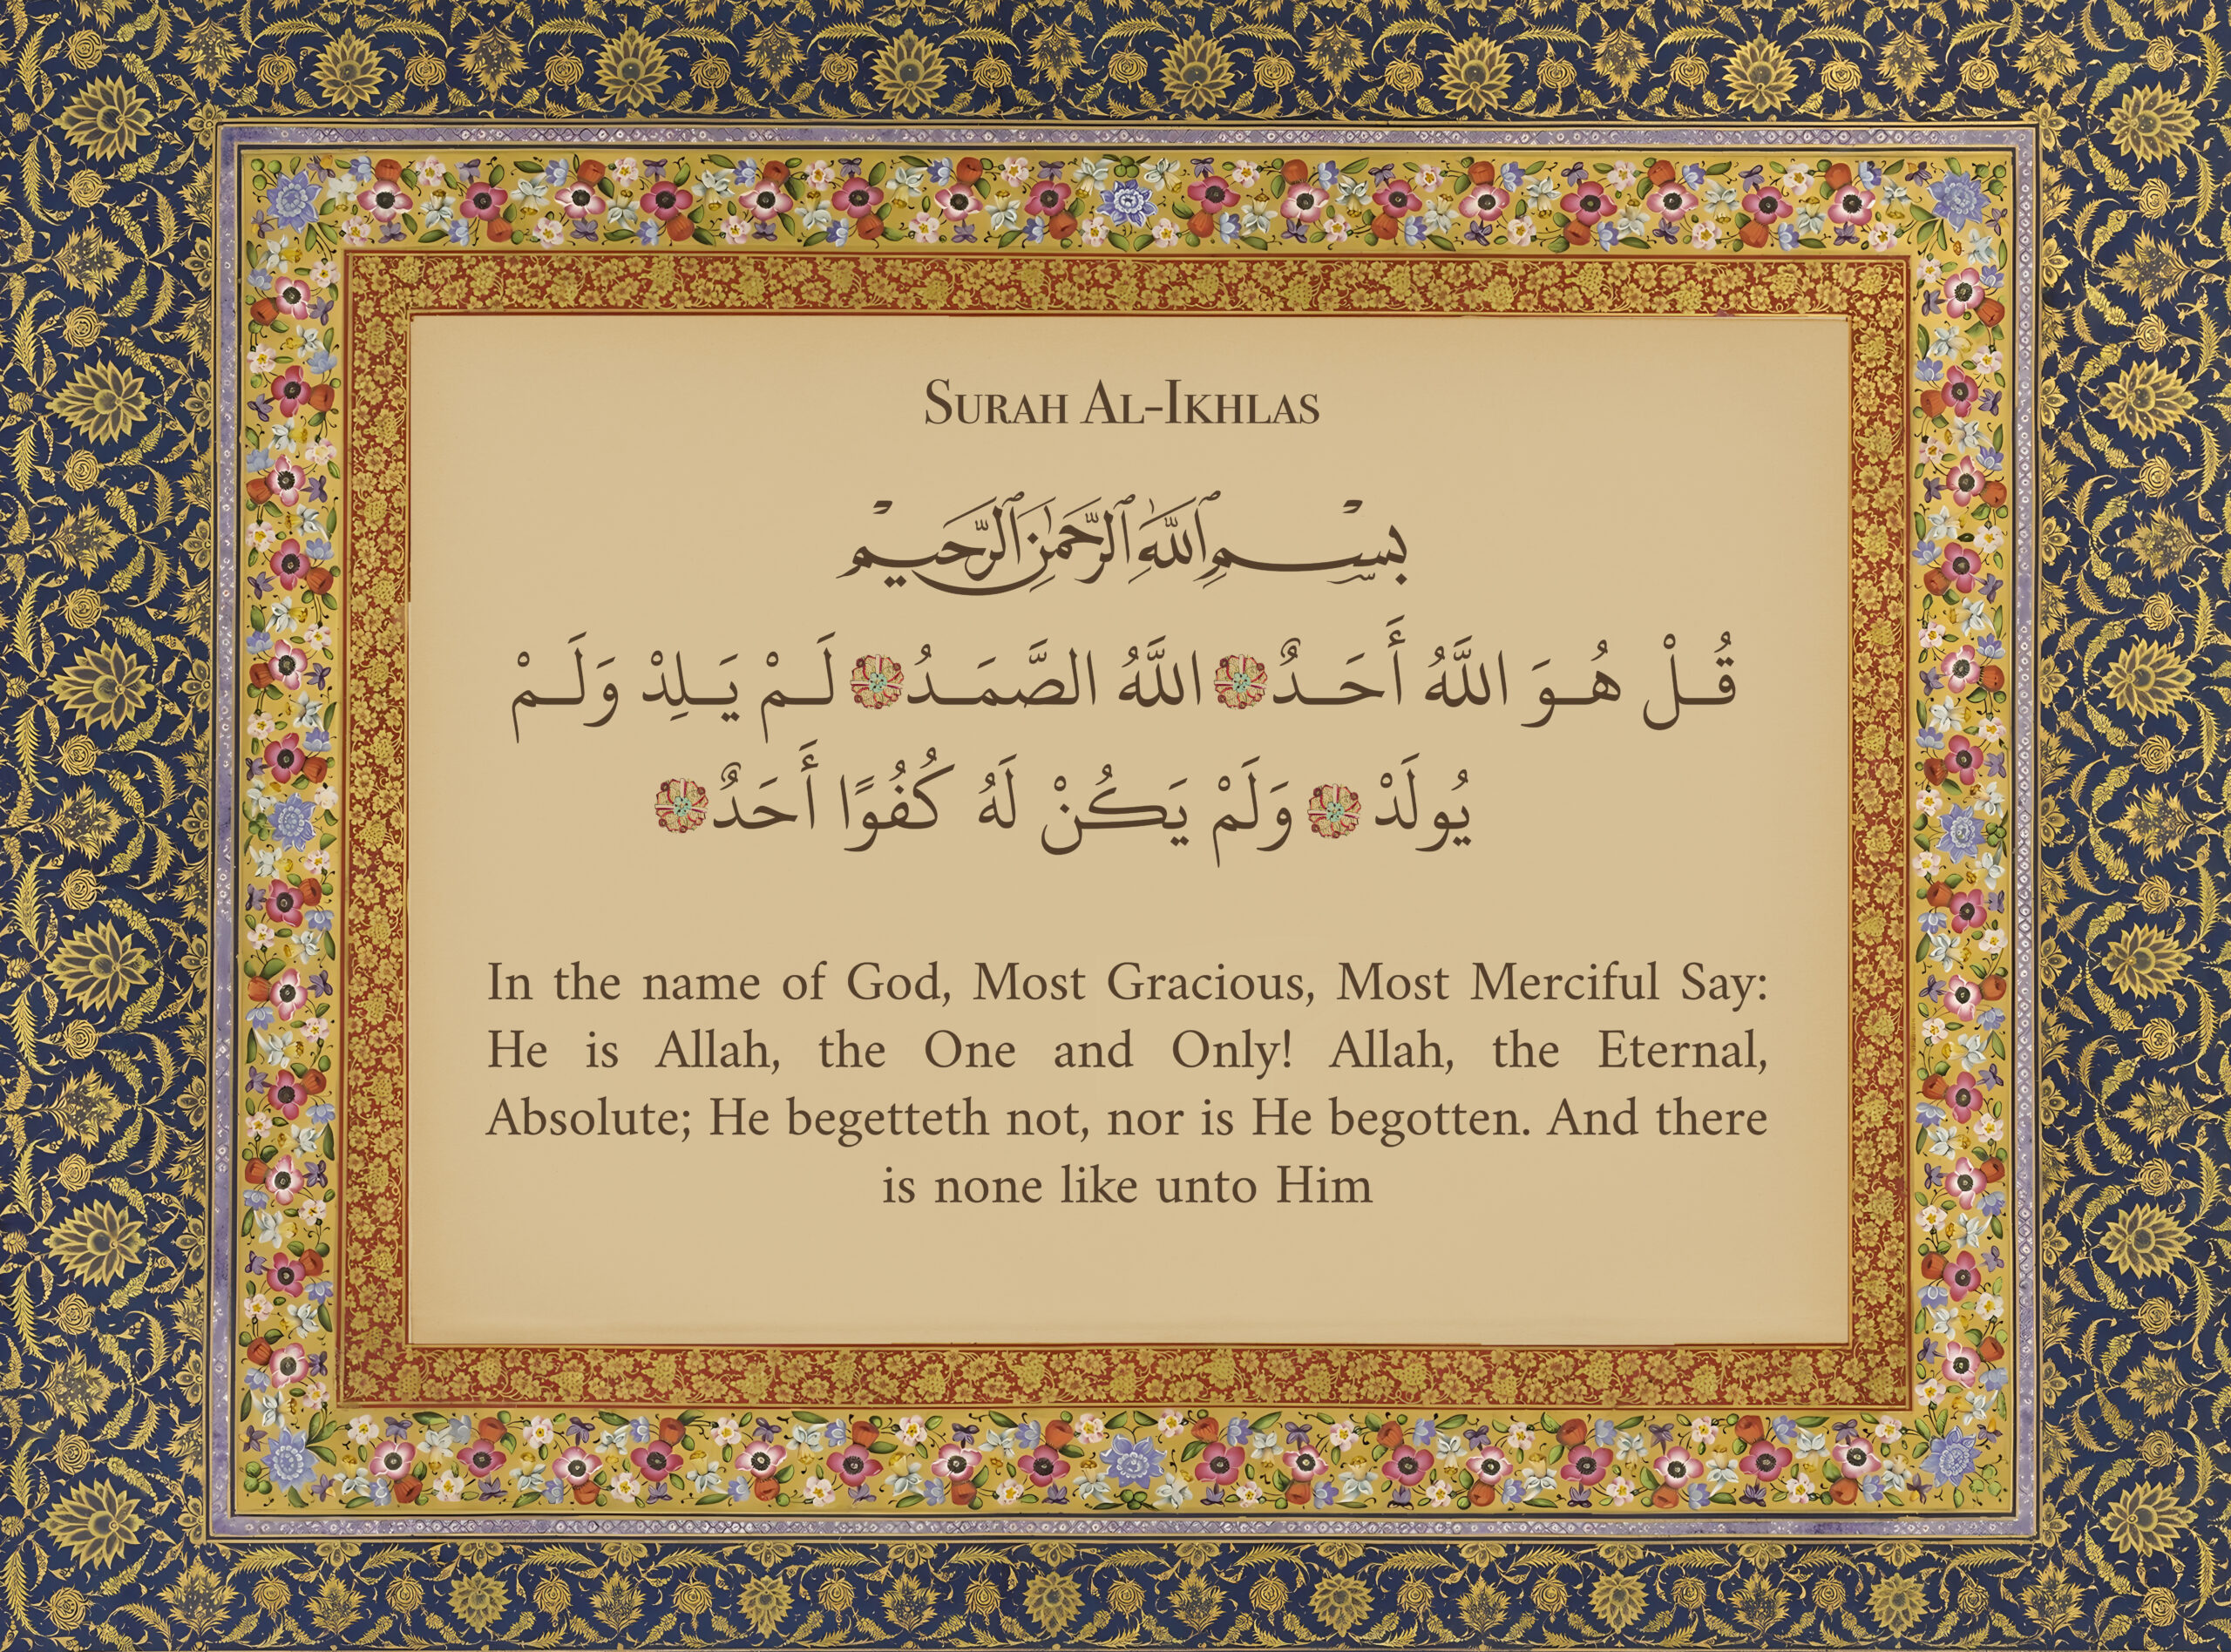 SURAH AL-IKHLAS
بِسْمِ ٱللَّهِ ٱلرَّحْمَٰنِ ٱلرَّحِيمِ
قُـلْ هُـوَ اللَّهُ أَحَـدٌ اللَّهُ الصَّمَـدُ لَـمْ يَـلِدْ وَلَـمْ
يُولَدْ وَلَمْ يَكُنْ لَهُ كُفُوًا أَحَدٌ
In the name of God, Most Gracious, Most Merciful Say:
He is Allah, the One and Only! Allah, the Eternal,
Absolute; He begetteth not, nor is He begotten. And there
is none like unto Him